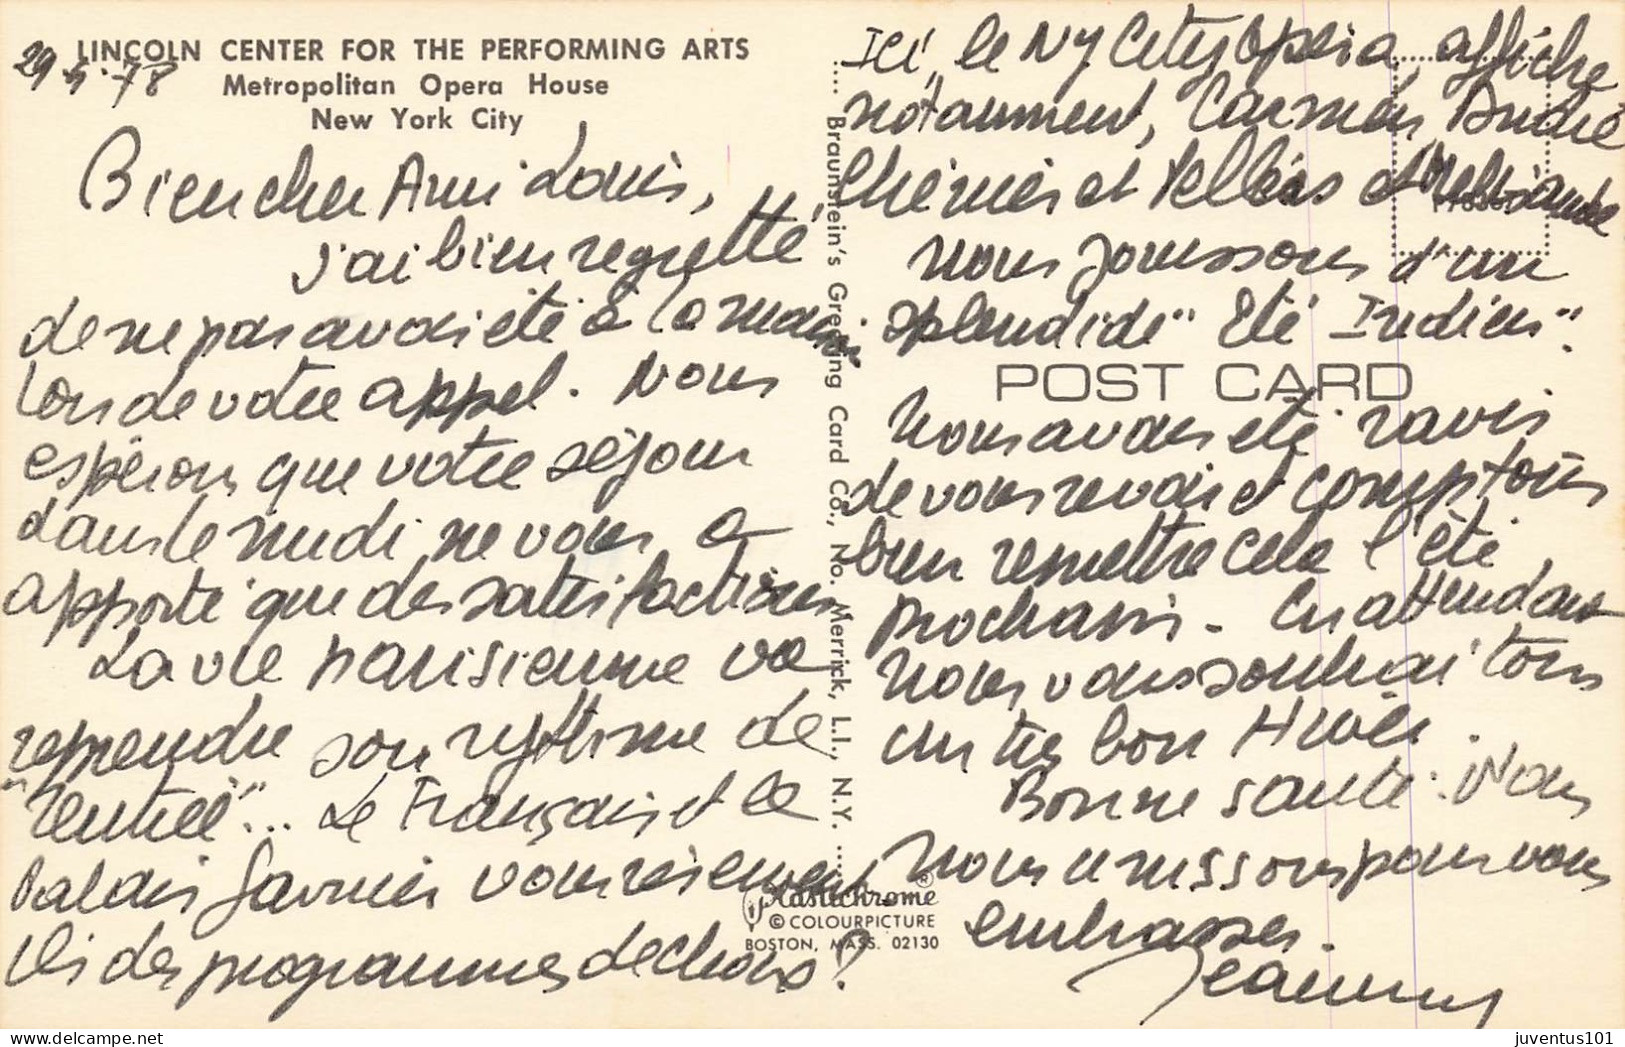 LINCOLN CENTER FOR THE PERFORMING ARTS
Metropolitan Opera House
New York City
Bien cher Ami Louis,
J'ai bien regretté
de ne pas avoir été à la maison
lors de votre appel. Nous
espérons que votre séjour
dans le midi ne vous a
apporté que des satisfactions
La vie parisienne va
reprendre son rythme de
"rentrée"... Le Français et le
Palais Garnier vous réservent
ils des programmes de choix ?
Braunstein's Greeting Card Co., No. Merrick, L.I., N.Y.
Plastichrome®
© COLOURPICTURE
BOSTON, MASS. 02130
POST CARD
Ici, le NY City Opera, affiche
notamment, Carmen, André
Chénier et Pelléas et Mélisande
Nous jouissons d'un
splendide "Eté Indien".
Nous avons été ravis
de vous revoir et comptons
bien remettre cela l'été
prochain. En attendant
nous vous souhaitons
un très bon Hiver.
Bonne santé. Nous
nous unissons pour vous
embrasser.
juventus101